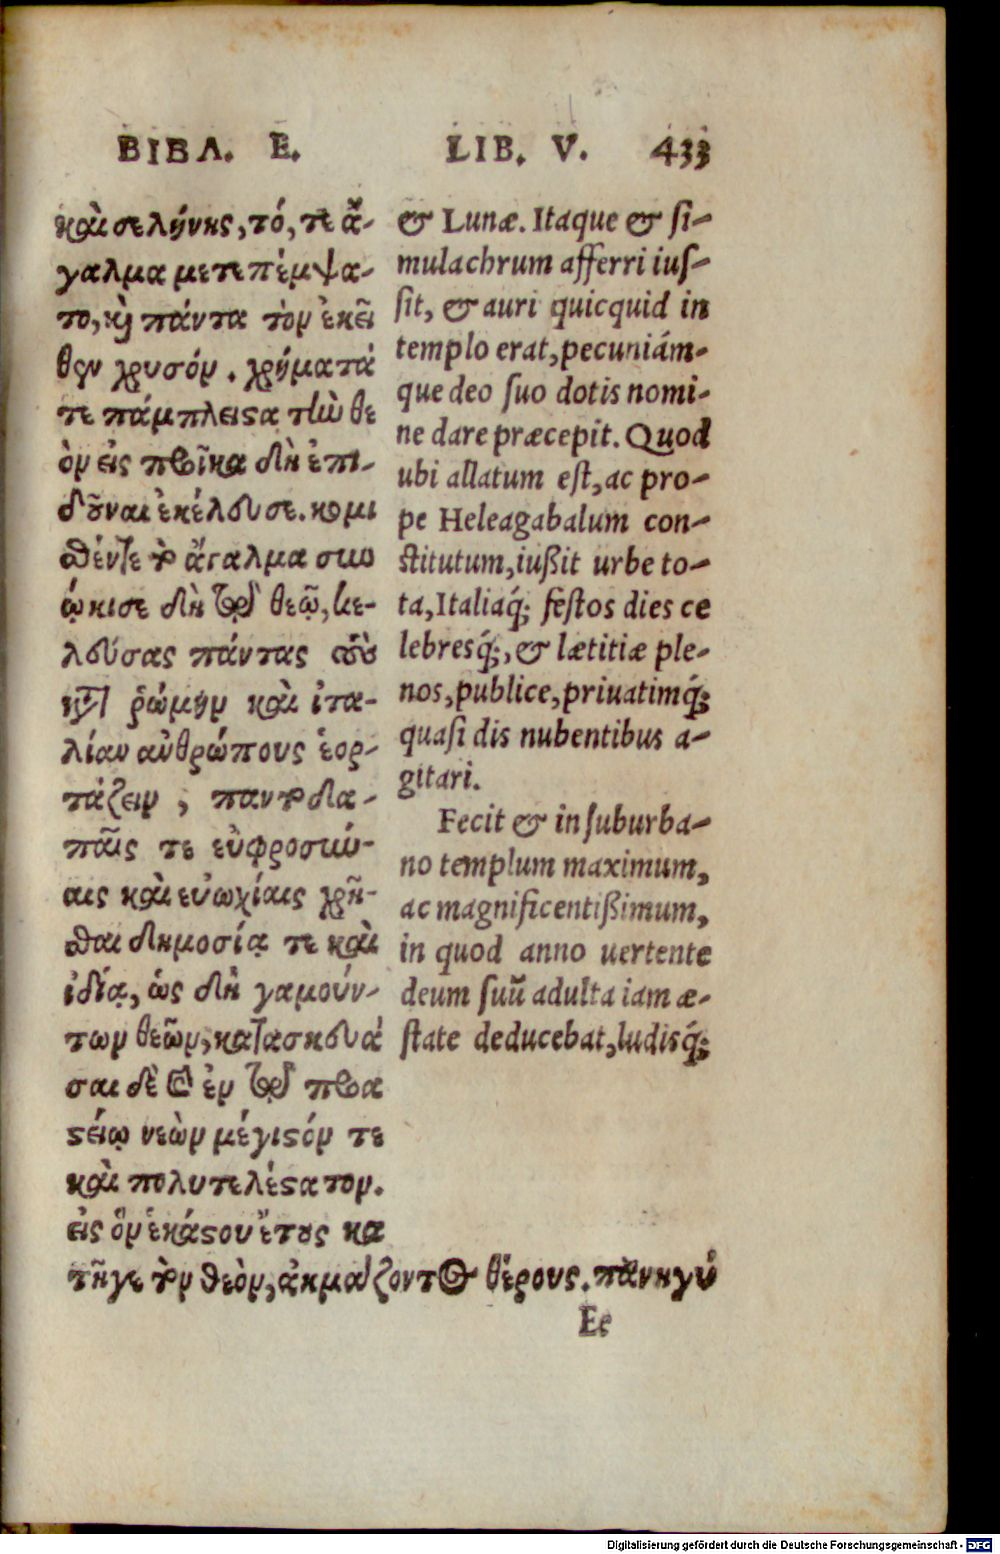 ΒΙΒΛ. Ε. LIB. V. 433
καὶ σελήνης, τό, τε ἄ-
γαλμα μετεπέμψα-
το, καὶ πάντα τὸν ἐκεῖ
θεν χρυσόν. χρήματά
τε πάμπλειστα τὴν θε
ὸν εἰς προῖκα δὴ ἐπι-
δοῦναι ἐκέλευσε. κομι
σθέν τε τὸ ἄγαλμα συν
ῴκισε δὴ τῷ θεῷ, κε-
λεύσας πάντας τοὺς
κατὰ ῥώμην καὶ ἰτα-
λίαν ἀνθρώπους ἑορ-
τάζειν, παντοδα-
παῖς τε εὐφροσύν-
αις καὶ εὐωχίαις χρῆ-
σθαι δημοσίᾳ τε καὶ
ἰδίᾳ, ὡς δὴ γαμούν-
των θεῶν, κατασκευά
σαι δὲ καὶ ἐν τῷ προα
στείῳ νεὼν μέγιστόν τε
καὶ πολυτελέστατον.
εἰς ὃν ἑκάστου ἔτους κα
τῆγε τὸν θεὸν, ἀκμάζοντος θέρους. πανηγύ
& Lunæ. Itaque & si-
mulachrum afferri ius-
sit, & auri quicquid in
templo erat, pecuniám-
que deo suo dotis nomi-
ne dare præcepit. Quod
ubi allatum est, ac pro-
pe Heleagabalum con-
stitutum, iußit urbe to-
ta, Italiaq́; festos dies ce
lebresq́;, & lætitiæ ple-
nos, publice, priuatimq́;
quasi dis nubentibus a-
gitari.
Fecit & in suburba-
no templum maximum,
ac magnificentißimum,
in quod anno uertente
deum suũ adulta iam æ-
state deducebat, ludisq́;
Ee
Digitalisierung gefördert durch die Deutsche Forschungsgemeinschaft - DFG